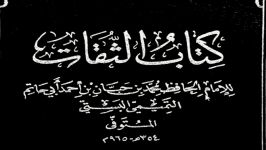 كتاب الثقات
للإمام الحافظ محمد بن حبان بن أحمد أبي حاتم
التميمي البستي
المتوفى
٣٥٤هـ = ٩٦٥م